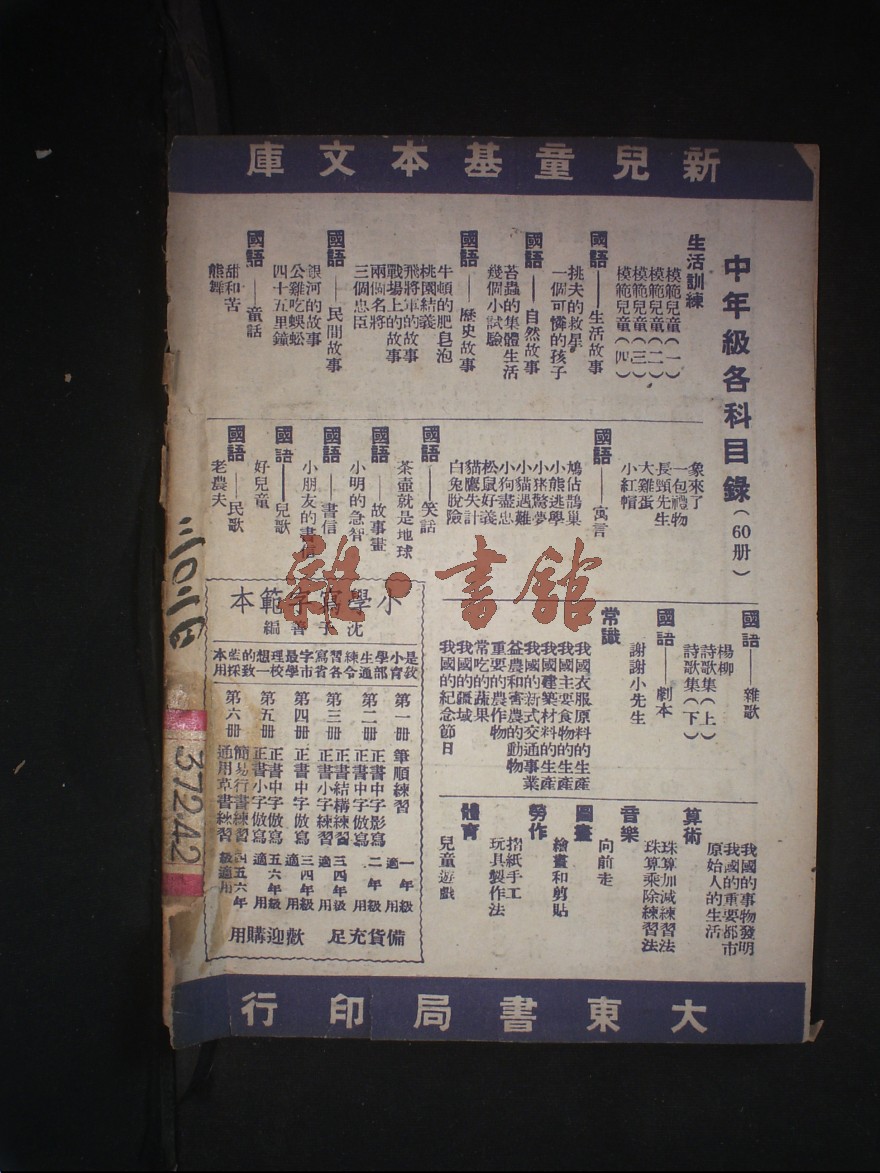 新兒童基本文庫
中年級各科目錄（60册）
生活訓練
模範兒童（一）
模範兒童（二）
模範兒童（三）
模範兒童（四）
國語——生活故事
挑夫的救星
一個可憐的孩子
國語——自然故事
苔蟲的集體生活
幾個小試驗
國語——歷史故事
牛頓的肥皂泡
桃園結義
飛將軍的故事
戰場上的故事
兩個名將
三個忠臣
國語——民間故事
銀河的故事
公雞吃蜈蚣
四十五里鐘
國語——童話
甜和苦
熊舞
象來了
一包禮物
長頸先生
大雞蛋
小紅帽
國語——寓言
鳩佔鵲巢
小熊逃學
小猪驚夢
小貓遇難
小狗盡忠
松鼠好義
貓鷹失計
白兔脫險
國語——笑話
茶壺就是地球
國語——故事畫
小明的急智
國語——書信
小朋友的書信
國語——兒歌
好兒童
國語——民歌
老農夫
國語——雜歌
楊柳
詩歌集（上）
詩歌集（下）
國語——劇本
謝謝小先生
常識
我國衣服原料的生產
我國主要食物的生產
我國建築材料的生產
我國的新式交通事業
益農和害農的動物
重要的農作物
常吃的蔬果
我國的疆域
我國的紀念節日
我國的事物發明
我國的重要都市
原始人的生活
算術
珠算加減練習法
珠算乘除練習法
音樂
向前走
圖畫
繪畫和剪貼
勞作
摺紙手工
玩具製作法
體育
兒童遊戲
小學寫字範本
沈子善編
是小學生練習寫字最理想的藍本
教育部通令各省市學校一致採用
第一册 筆順練習 一年級適用
第二册 正書中字影寫 二年級適用
第三册 正書結構練習 正書小字練習 三四年級適用
第四册 正書中字倣寫 三四年級適用
第五册 正書中字倣寫 正書小字倣寫 五六年級適用
第六册 簡易行書練習 通用草書練習 四五六年級適用
備貨充足 歡迎購用
大東書局印行
雜·書館
372.42